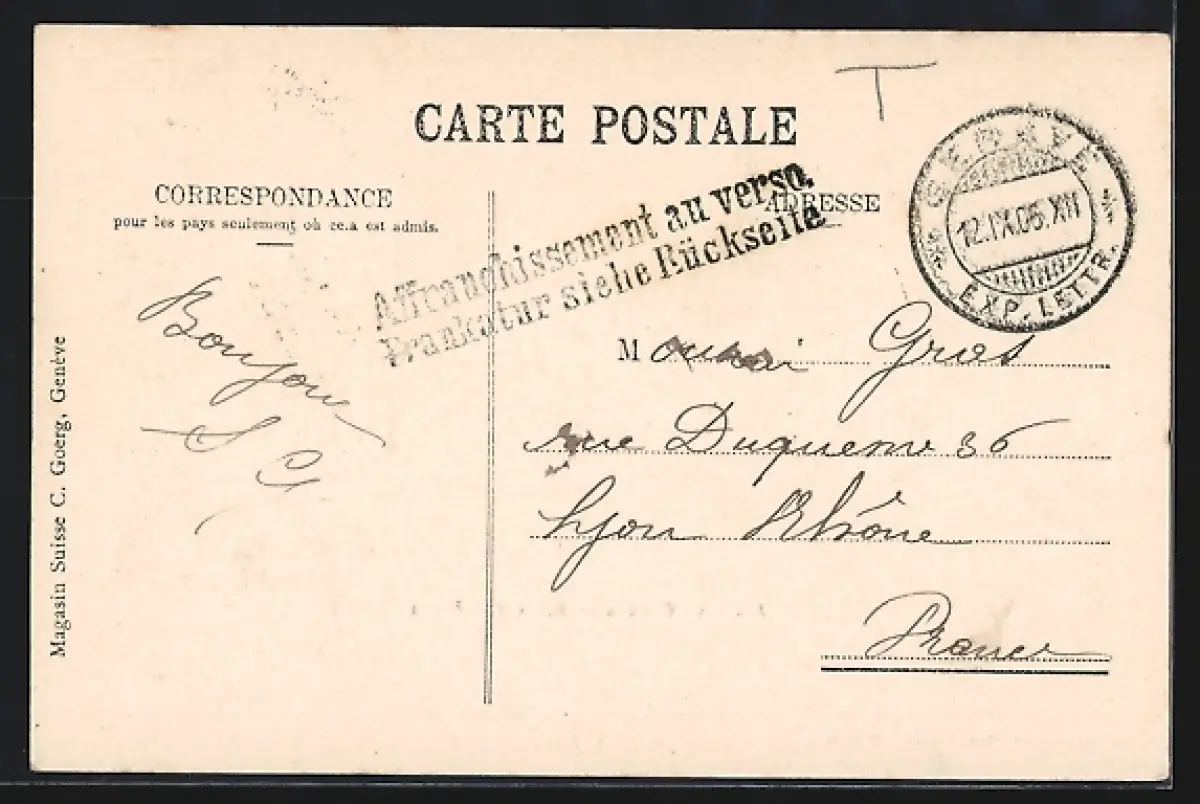 T
CARTE POSTALE
CORRESPONDANCE
pour les pays seulement où ce.a est admis.
Affranchissement au verso.
Frankatur siehe Rückseite
ADRESSE
GENÈVE
12.IX.06.XII
EXP. LETTR.
Bonjour
S G
M Gras
rue Duquesne 36
Lyon Rhône
France
Magasin Suisse C. Goerg, Genève